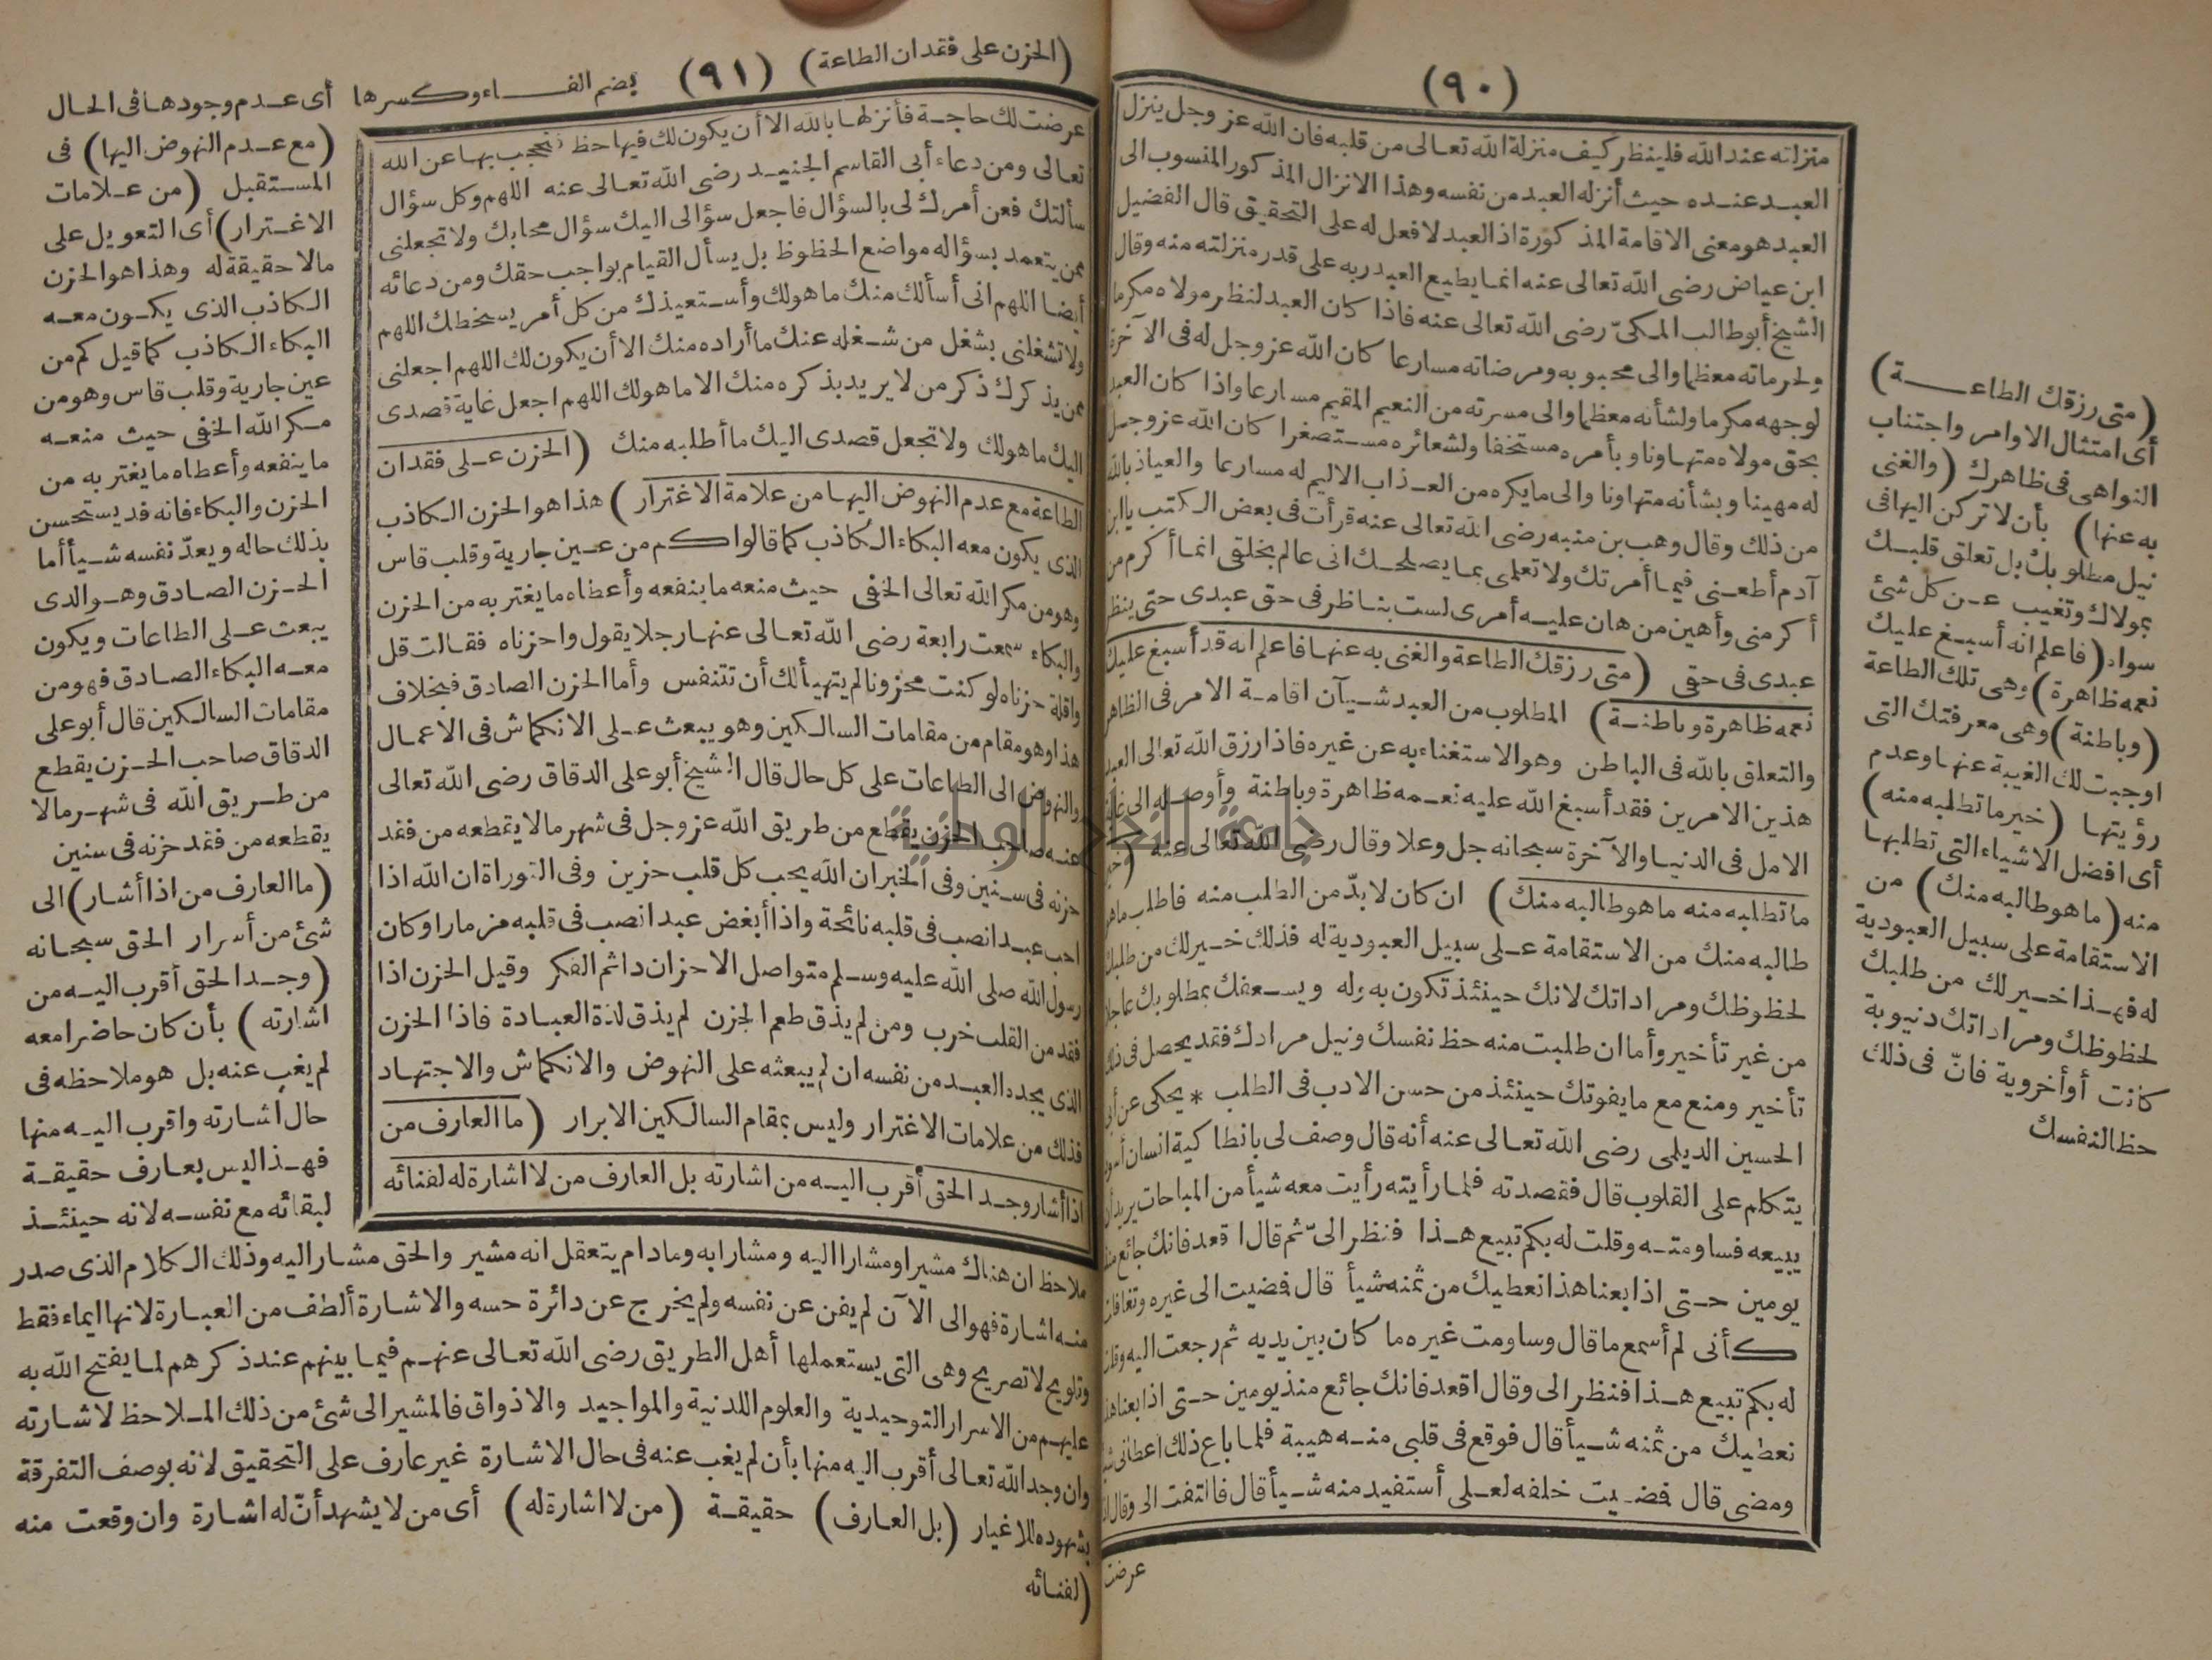 (٩٠)
منزلته عند الله فلينظر كيف منزلة الله تعالى من قلبه فان الله عز وجل ينزل
العبد عنده حيث أنزله العبد من نفسه وهذا الانزال المذكور المنسوب الى
العبد هو معنى الاقامة المذكورة اذ العبد لا فعل له على التحقيق قال الفضيل
ابن عياض رضى الله تعالى عنه انما يطيع العبد ربه على قدر منزلته منه وقال
الشيخ أبو طالب المكىّ رضى الله تعالى عنه فاذا كان العبد لنظر مولاه مكرما
ولحرماته معظما والى محبوبه ومرضاته مسارعا كان الله عز وجل له فى الآخرة
لوجهه مكرما ولشأنه معظما والى مسرته من النعيم المقيم مسارعا واذا كان العبد
بحق مولاه متهاونا وبأمره مستخفا ولشعائره مستصغرا كان الله عز وجل
له مهينا وبشأنه متهاونا والى ما يكره من العذاب الاليم له مسارعا والعياذ بالله
من ذلك وقال وهب بن منبه رضى الله تعالى عنه قرأت فى بعض الكتب يا ابن
آدم أطعنى فيما أمرتك ولا تعلمى بما يصلحك انى عالم بخلقى انما أكرم من
أكرمنى وأهين من هان عليه أمرى لست بناظر فى حق عبدى حتى ينظر
عبدى فى حقى (متى رزقك الطاعة والغنى به عنها فاعلم انه قد أسبغ عليك
نعمه ظاهرة وباطنة) المطلوب من العبد شيآن اقامة الامر فى الظاهر
والتعلق بالله فى الباطن وهو الاستغناء به عن غيره فاذا رزق الله تعالى العبد
هذين الامرين فقد أسبغ الله عليه نعمه ظاهرة وباطنة وأوصله الى غاية
الامل فى الدنيا والآخرة سبحانه جل وعلا وقال رضى الله تعالى عنه (خير
ما تطلبه منه ما هو طالبه منك) ان كان لا بدّ من الطلب منه فاطلب ما هو
طالبه منك من الاستقامة على سبيل العبودية له فذلك خير لك من طلبك
لحظوظك ومراداتك لانك حينئذ تكون به وله ويسعفك بمطلوبك عاجلا
من غير تأخير وأما ان طلبت منه حظ نفسك ونيل مرادك فقد يحصل فى ذلك
تأخير ومنع مع ما يفوتك حينئذ من حسن الادب فى الطلب * يحكى عن أبى
الحسين الديلمى رضى الله تعالى عنه أنه قال وصف لى بانطاكية انسان أسود
يتكلم على القلوب قال فقصدته فلما رأيته رأيت معه شيأ من المباحات يريد أن
يبيعه فساومته وقلت له بكم تبيع هذا فنظر الىّ ثم قال اقعد فانك جائع منذ
يومين حتى اذا بعنا هذا نعطيك من ثمنه شيأ قال فضيت الى غيره وتغافلت
كأنى لم أسمع ما قال وساومت غيره ما كان بين يديه ثم رجعت اليه وقلت
له بكم تبيع هذا فنظر الى وقال اقعد فانك جائع منذ يومين حتى اذا بعنا هذا
نعطيك من ثمنه شيأ قال فوقع فى قلبى منه هيبة فلما باع ذلك اعطانى شيأ
ومضى قال فضيت خلفه لعلى أستفيد منه شيأ قال فالتفت الى وقال اذا
عرضت
(متى رزقك الطاعة)
أى امتثال الاوامر واجتناب
النواهى فى ظاهرك (والغنى
به عنها) بأن لا تركن اليها فى
نيل مطلوبك بل تعلق قلبك
بمولاك وتغيب عن كل شئ
سواه (فاعلم انه أسبغ عليك
نعمه ظاهرة) وهى تلك الطاعة
(وباطنة) وهى معرفتك التى
اوجبت لك الغيبة عنها وعدم
رؤيتها (خير ما تطلبه منه)
أى افضل الاشياء التى تطلبها
منه (ما هو طالبه منك) من
الاستقامة على سبيل العبودية
له فهذا خير لك من طلبك
لحظوظك ومراداتك دنيوية
كانت أو أخروية فانّ فى ذلك
حظا لنفسك
(الحزن على فقدان الطاعة) (٩١) بضم الفاء وكسرها
عرضت لك حاجة فأنزلها بالله الا أن يكون لك فيها حظ فتحجب بها عن الله
تعالى ومن دعاء أبى القاسم الجنيد رضى الله تعالى عنه اللهم وكل سؤال
سألتك فعن أمرك لى بالسؤال فاجعل سؤالى اليك سؤال محابك ولا تجعلنى
ممن يتعمد بسؤاله مواضع الحظوظ بل يسأل القيام بواجب حقك ومن دعائه
أيضا اللهم انى أسألك منك ما هولك وأستعيذك من كل أمر يسخطك اللهم
ولا تشغلنى بشغل من شغله عنك ما أراده منك الا أن يكون لك اللهم اجعلنى
ممن يذكرك ذكر من لا يريد بذكره منك الا ما هولك اللهم اجعل غاية قصدى
اليك ما هولك ولا تجعل قصدى اليك ما أطلبه منك (الحزن على فقدان
الطاعة مع عدم النهوض اليها من علامة الاغترار) هذا هو الحزن الكاذب
الذى يكون معه البكاء الكاذب كما قالوا كم من عين جارية وقلب قاس
وهو من مكر الله تعالى الخفى حيث منعه ما ينفعه وأعطاه ما يغتر به من الحزن
والبكاء سمعت رابعة رضى الله تعالى عنها رجلا يقول واحزناه فقالت قل
واقلة حزناه لو كنت محزونا لم يتهيألك أن تتنفس وأما الحزن الصادق فبخلاف
هذا وهو مقام من مقامات السالكين وهو يبعث على الانكماش فى الاعمال
والنهوض الى الطاعات على كل حال قال الشيخ أبو على الدقاق رضى الله تعالى
عنه صاحب الحزن يقطع من طريق الله عز وجل فى شهر مالا يقطعه من فقد
حزنه فى سنين وفى الخبر ان الله يحب كل قلب حزين وفى التوراة ان الله اذا
احب عبدا نصب فى قلبه نائحة واذا أبغض عبدا نصب فى قلبه مزمارا وكان
رسول الله صلى الله عليه وسلم متواصل الاحزان دائم الفكر وقيل الحزن اذا
فقد من القلب خرب ومن لم يذق طعم الحزن لم يذق لذة العبادة فاذا الحزن
الذى يجده العبد من نفسه ان لم يبعثه على النهوض والانكماش والاجتهاد
فذلك من علامات الاغترار وليس بمقام السالكين الابرار (ما العارف من
اذا أشار وجد الحق أقرب اليه من اشارته بل العارف من لا اشارة له لفنائه
أى عدم وجودها فى الحال
(مع عدم النهوض اليها) فى
المستقبل (من علامات
الاغترار) أى التعويل على
مالا حقيقة له وهذا هو الحزن
الكاذب الذى يكون معه
البكاء الكاذب كما قيل كم من
عين جارية وقلب قاس وهو من
مكر الله الخفى حيث منعه
ما ينفعه وأعطاه ما يغتر به من
الحزن والبكاء فانه قد يستحسن
بذلك حاله ويعدّ نفسه شيأ أما
الحزن الصادق وهو الذى
يبعث على الطاعات ويكون
معه البكاء الصادق فهو من
مقامات السالكين قال أبو على
الدقاق صاحب الحزن يقطع
من طريق الله فى شهر مالا
يقطعه من فقد حزنه فى سنين
(ما العارف من اذا أشار) الى
شئ من أسرار الحق سبحانه
(وجد الحق أقرب اليه من
اشارته) بأن كان حاضرا معه
لم يغب عنه بل هو ملاحظه فى
حال اشارته واقرب اليه منها
فهذا ليس بعارف حقيقة
لبقائه مع نفسه لانه حينئذ
ملاحظ ان هناك مشيرا ومشارا اليه ومشارا به ومادام يتعقل انه مشير والحق مشار اليه وذلك الكلام الذى صدر
منه اشارة فهو الى الآن لم يفن عن نفسه ولم يخرج عن دائرة حسه والاشارة ألطف من العبارة لانها ايماء فقط
وتلويح لا تصريح وهى التى يستعملها أهل الطريق رضى الله تعالى عنهم فيما بينهم عند ذكرهم لما يفتح الله به
عليهم من الاسرار التوحيدية والعلوم اللدنية والمواجيد والاذواق فالمشير الى شئ من ذلك الملاحظ لاشارته
وان وجد الله تعالى أقرب اليه منها بأن لم يغب عنه فى حال الاشارة غير عارف على التحقيق لانه بوصف التفرقة
بشهوده للاغيار (بل العارف) حقيقة (من لا اشارة له) أى من لا يشهد أنّ له اشارة وان وقعت منه
(لفنائه
جامعة النجاح الوطنية